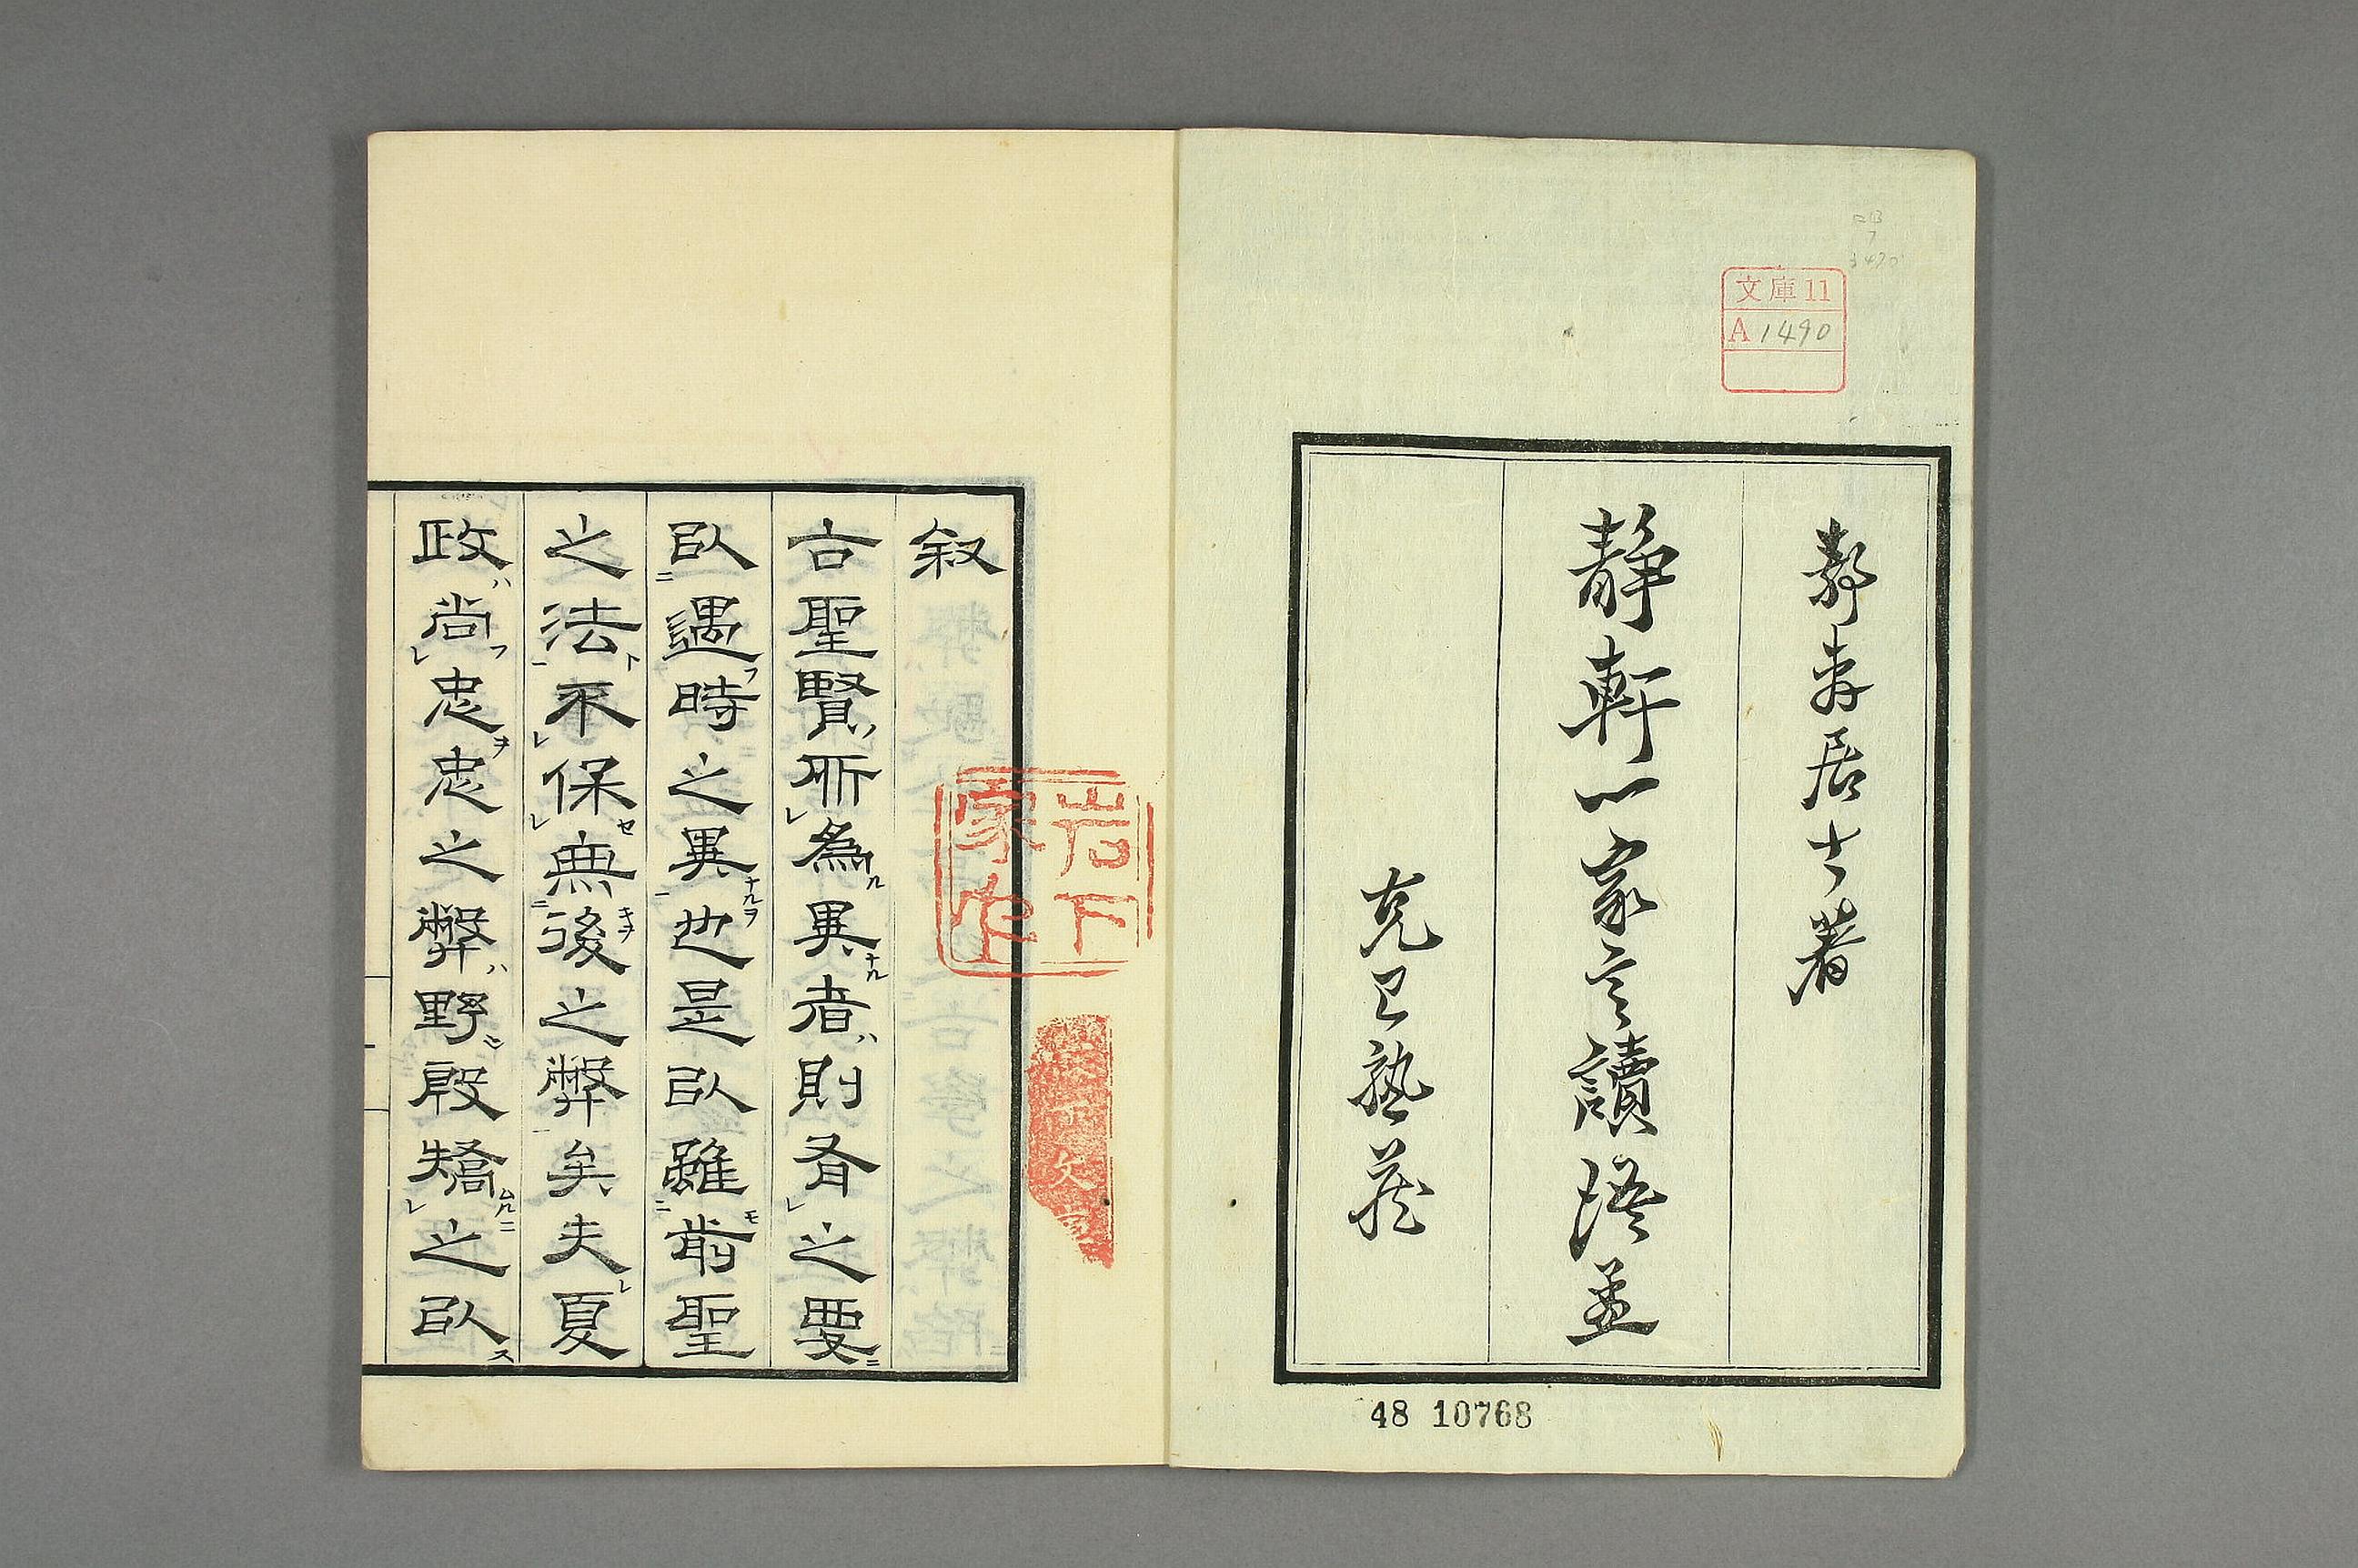 文庫11
A 1490
居士著
靜軒一家言讀孟
克己塾蔵
48 10768
叙
古聖賢所為異者則有之要
以遇時之異也是以雖前聖
之法不保無後之弊矣夫夏
政尚忠忠之弊野殷矯之以
岩下
家